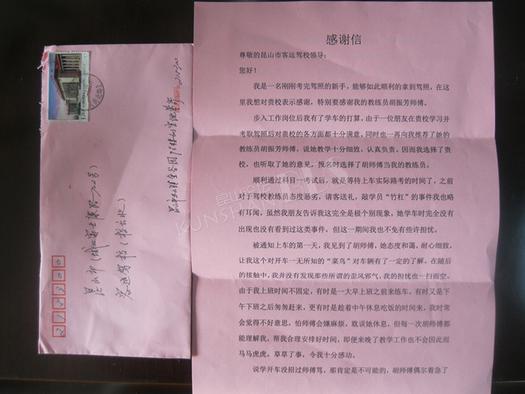 感谢信
尊敬的昆山市客运驾校领导：
您好！
我是一名刚刚考完驾照的新手，能够如此顺利的拿到驾照，在这
里我想对贵校表示感谢，特别要感谢我的教练员胡振芳师傅。
步入工作岗位后我有了学车的打算，由于一位朋友在贵校学习并
考取驾照后对贵校的各方面都十分满意，同时也一再向我推荐了她的
教练员胡振芳师傅，说她教学十分细致，认真负责，因而我选择了贵
校，也听取了她的意见，报名时选择了胡师傅当我的教练员。
顺利通过科目一考试后，就是等待上车实际路考的时间了，之前
对于驾校教练员态度恶劣，请客送礼，敲学员“竹杠”的事件我也略
有耳闻，虽然我朋友告诉我这完全是极个别现象，她学车时完全没有
出现也没有看到过这类事件，但这一期间我也不免有些许担忧。
被通知上车的第一天，我见到了胡师傅，她态度和蔼，耐心细致，
让我这个对开车一无所知的“菜鸟”对车辆有了一定的了解。在随后
的接触中，我并没有发现那些所谓的歪风邪气，我的担忧也一扫而空。
由于我上班时间不固定，有时是一大早上班之前来练车，有时又是下
午下班之后匆匆赶来，更有时是趁着中午休息吃饭的时间来，我时常
会觉得不好意思，怕师傅会嫌麻烦，耽误她休息，但每一次胡师傅都
能理解我，帮我合理安排好时间，即便来晚了教学工作也不会因此而
马马虎虎，草草了事，令我十分感动。
说学开车没招过师傅骂，那肯定是不可能的，胡师傅偶尔着急了